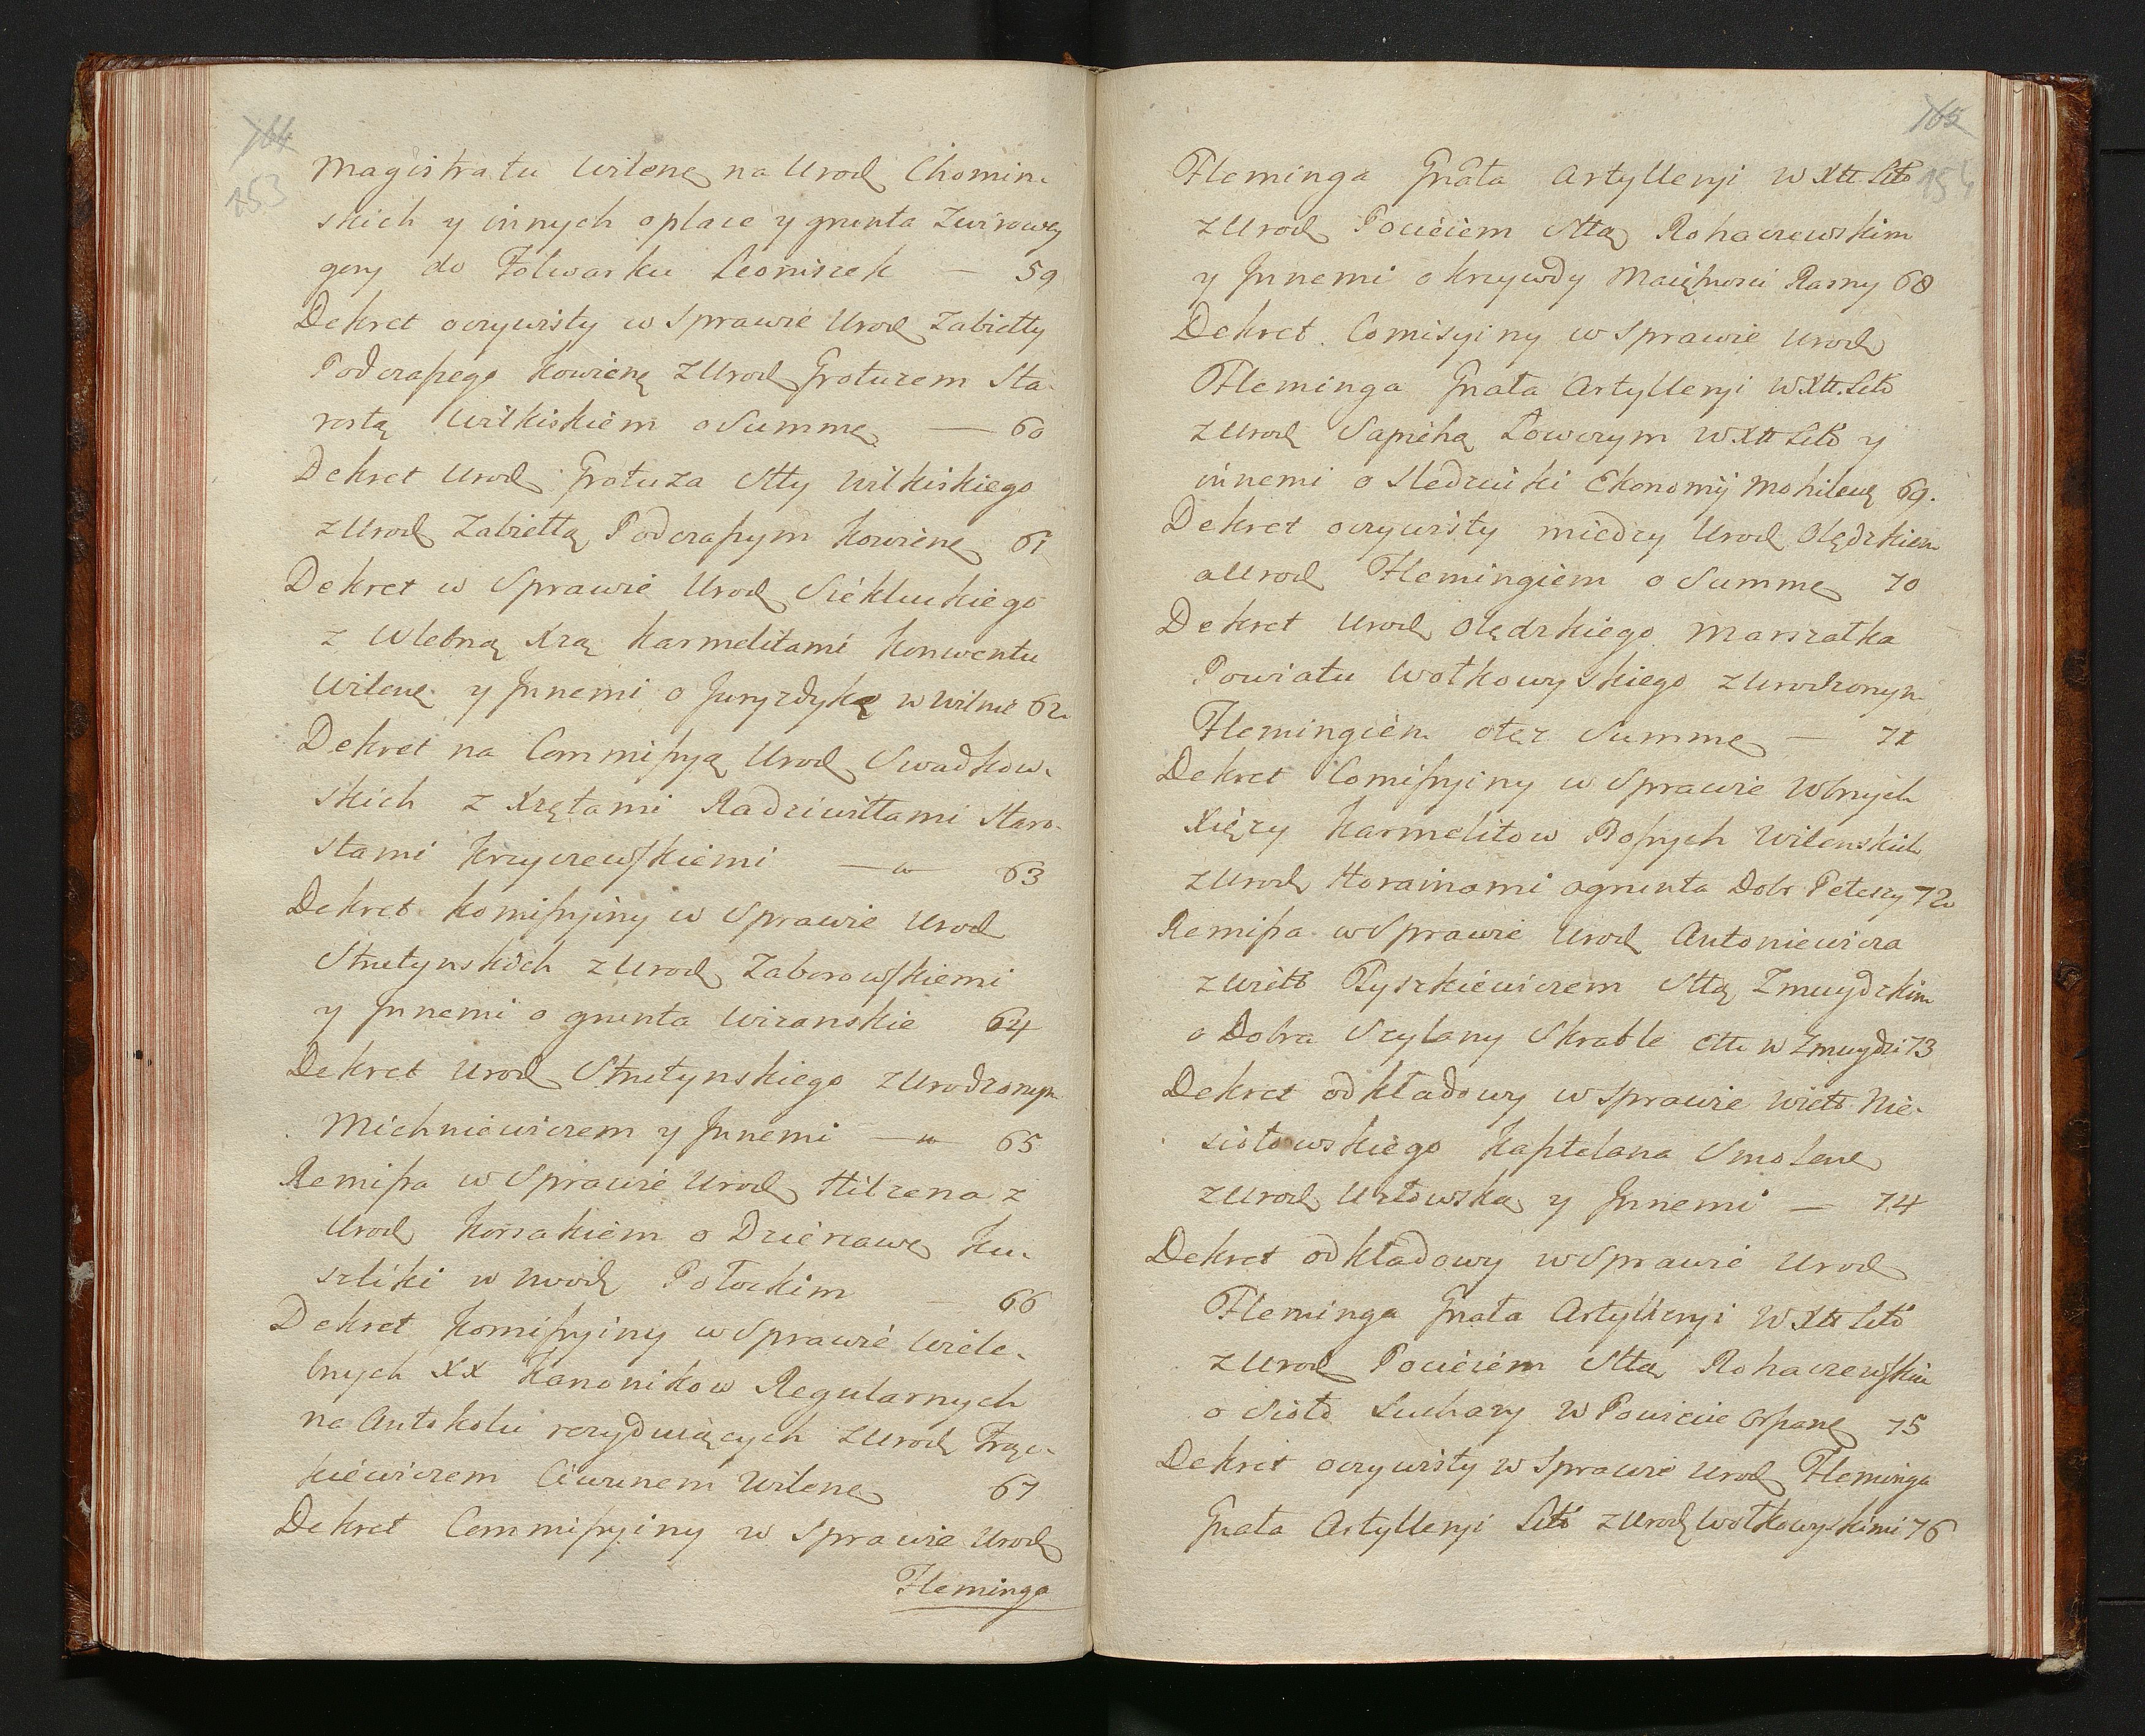 164
153
Magistratu Wileng na Urod Chomin-
skich y innych o place y grunta Zwirowey
gory do Folwarku Leoniszek — 59
Dekret oczywisty w Sprawie Urod Zabiełły
Podczaszego Kowieng z Urod Grotuzem Sta-
rostą Wilkiskiem o Summę — 60
Dekret Urod Grotuza Stty Wilkiskiego
z Urod Zabiełłą Podczaszym Kowieng 61
Dekret w Sprawie Urod Siekluckiego
z Wlebną Xżą Karmelitami Konwentu
Wileng y Innemi o Juryzdykę w Wilnie 62
Dekret na Commissyą Urod Swadkow-
skich z Xżętami Radziwiłłami Staro-
stami Krzyczewskiemi — 63
Dekret Komissyiny w Sprawie Urod
Strutynskich z Urod Zaborowskiemi
y Innemi o grunta Wizanskie 64
Dekret Urod Strutynskiego z Urodzonym
Michniewiczem y Innemi — 65
Remissa w Sprawie Urod Hilzena z
Urod Korsakiem o Dzierżawę Ku-
szliki w Uwodz Połockim — 66
Dekret Komissyiny w Sprawie Wiele-
bnych XX Kanonikow Regularnych
na Antokolu rezyduiących z Urod
kiewiczem Ciwunem Wileng 67
Dekret Commissyiny w Sprawie Urod
Fleminga
165
154
Fleminga Gnała Artylleryi W Xtt Litō
z Urod Pocieiem Sttą Rohaczewskim
y Innemi o krzywdy Maiętnosci Rasny 68
Dekret Comisyiny w Sprawie Urod
Fleminga Gnała Artylleryi W Xtt. Litō
z Urod Sapiehą Łowczym W Xtt Litō y
innemi o Sledziuki Ekonomij Mohileng 69.
Dekret oczywisty miedzy Urod Olędzkiem
a Urod Flemingiem o Summę 70
Dekret Urod Olędzkiego Marszałka
Powiatu Wołkowyskiego z Urodzonym
Flemingiem otęż Summę — 71
Dekret Comissyiny w Sprawie Wbnych
Xięży Karmelitow Bosych Wilenskich
z Urod Horainami o grunta Dobr Peteszy 72
Remissa w Sprawie Urod Antoniewicza
z Wiełł Tyszkiewiczem Sttą Zmuydzkim
o Dobra Szylany Skrable ett w Zmuydzi 73
Dekret odkładowy w Sprawie Wiełł Nie-
siołowskiego Kasztelana Smoleng
z Urod Uzłowską y Innemi — 74
Dekret odkładowy w Sprawie Urod
Fleminga Gnała Artylleryi W Xtt Litō
z Urod Pocieiem Sttą Rohaczewskim
o Sioło Suchary w Powiecie Orszang 75
Dekret oczywisty w Sprawie Urod Fleminga
Gnała Artylleryi Litō z Urod Wołkowyskimi 76